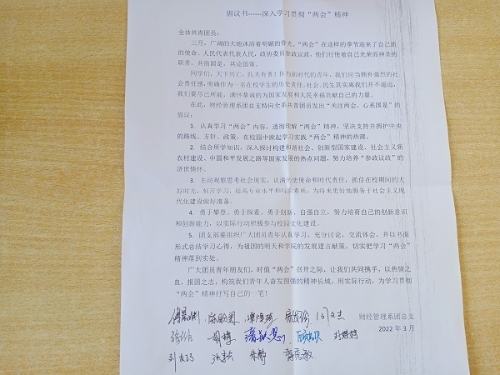 倡议书——深入学习贯彻“两会”精神
全体共青团员：
三月，广阔的大地沐浴着明媚的春光，“两会”在这样的季节迎来了自己的
的使命。人民代表代表人民，政协委员参政议政，他们行使着自己光荣的神圣的
职责，共商国是，共论国策。
同学们，天下兴亡，匹夫有责！作为新时代的青年，我们应当拥有强烈的社
会责任感，明确作为一名在校学生的历史责任。社会、民生其实离我们并不遥远，
我们要尽己所能，满怀挚诚的为国家发展和人民幸福贡献自己的力量。
在此，财经管理系团总支特向全系共青团员发出“关注两会，心系国是”的
倡议：
1. 认真学习“两会”内容，透彻理解“两会”精神，坚决支持并拥护中央
的路线、方针、政策，在校园中掀起学习实践“两会”精神的热潮。
2. 结合所学知识，深入探讨构建和谐社会、创新型国家建设、社会主义新
农村建设、中国和平发展之路等国家发展的热点问题，努力培养“参政议政”的
济世情怀。
3. 主动观察思考社会现实，认清历史使命和时代责任，抓住在校期间的大
好时光，刻苦学习，提高专业水平和综合素质，为将来更好地服务于社会主义现
代化建设做好准备。
4. 勇于攀登、勇于探索、勇于创新，自强自立，努力培育自己的创新意识
和创新能力，以实际行动积极参与校园文化建设。
5. 团支部要组织广大团员青年认真学习、充分讨论、交流体会，并以书面
形式总结学习心得，为祖国的明天和学院的发展建言献策，切实把学习“两会”
精神落到实处。
广大团员青年朋友们，时值“两会”召开之际，让我们共同携手，以热诚之
血，报国之志，构筑我们青年人奋发图强的精神长城，用实际行动，为学习贯彻
“两会”精神抒写自己的一笔！
财经管理系团总支
2022 年 3 月